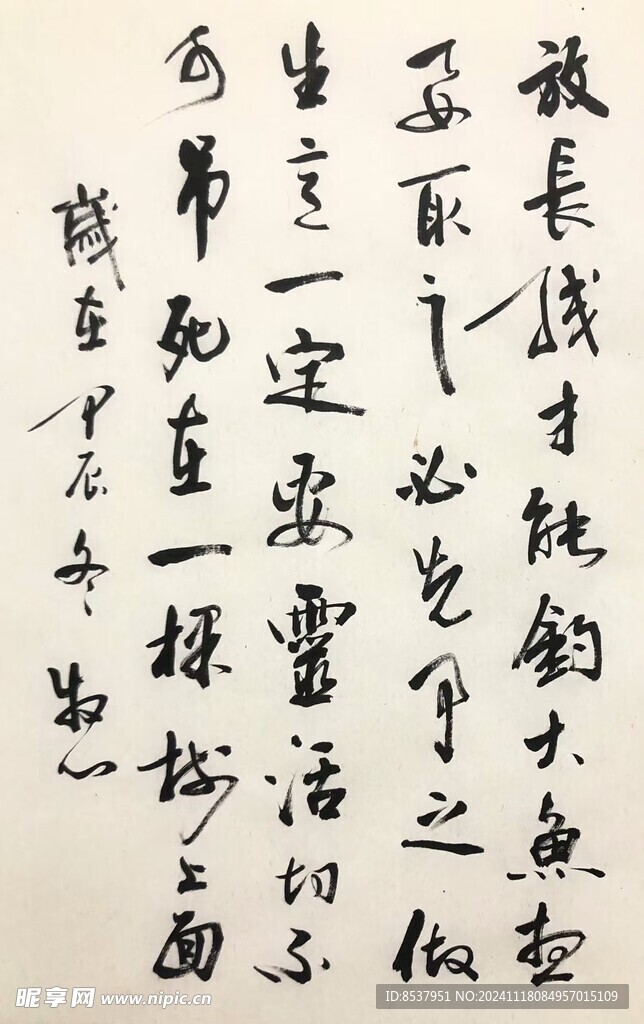 放長线才能釣大魚想
要取之必先予之做
生意一定要靈活切不
可吊死在一棵树上面
歲在甲辰冬 牧心
昵享网 www.nipic.cn
ID:8537951 NO:20241118084957015109